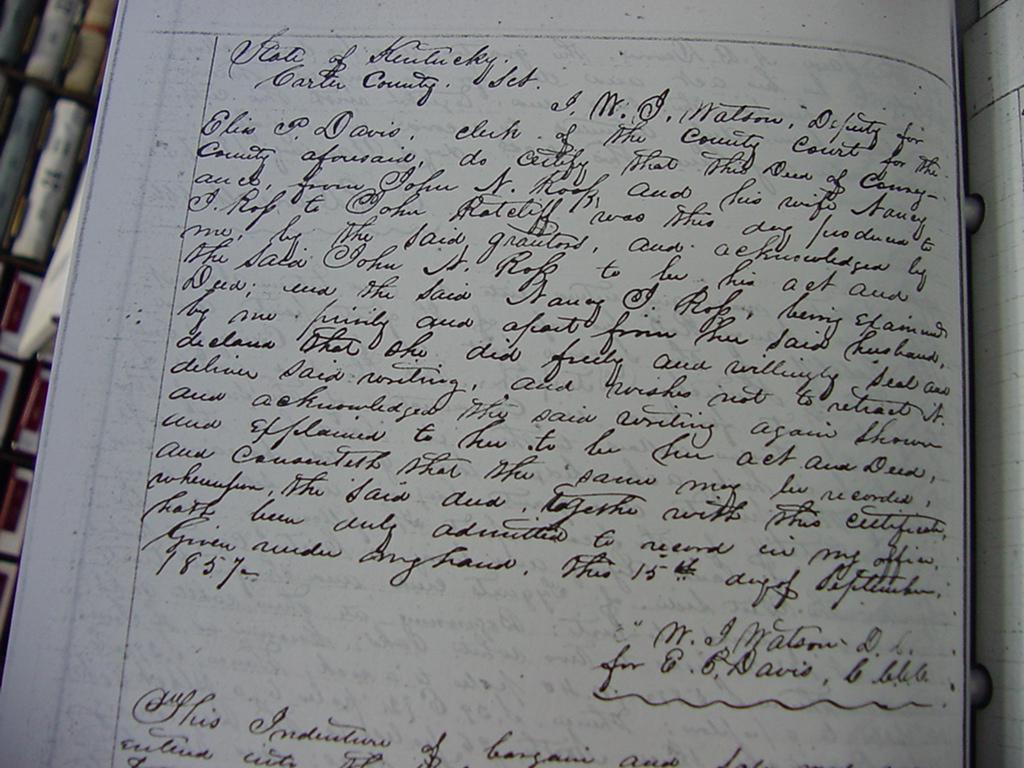 State of Kentucky.
Carter County. Sct.
I, W. J. Watson, Deputy for
Elias P. Davis, clerk of the County Court for the
County aforesaid, do certify that this Deed of Convey-
ance, from John N. Ross and his wife Nancy
J. Ross to John Ratcliff was this day produced to
me, by the said grantors, and acknowledged by
the said John N. Ross to be his act and
Deed; and the said Nancy J. Ross, being examined
by me privily and apart from her said husband,
declare that she did freely and willingly seal and
deliver said writing, and wishes not to retract it.
and acknowledged the said writing again shown
and explained to her to be her act and Deed,
and consenteth that the same may be recorded,
whereupon, the said deed, together with this certificate,
hath been duly admitted to record in my office.
Given under my hand, this 15th day of September.
1857
W. J. Watson D. C.
for E. P. Davis,
This Indenture of bargain and
entered into